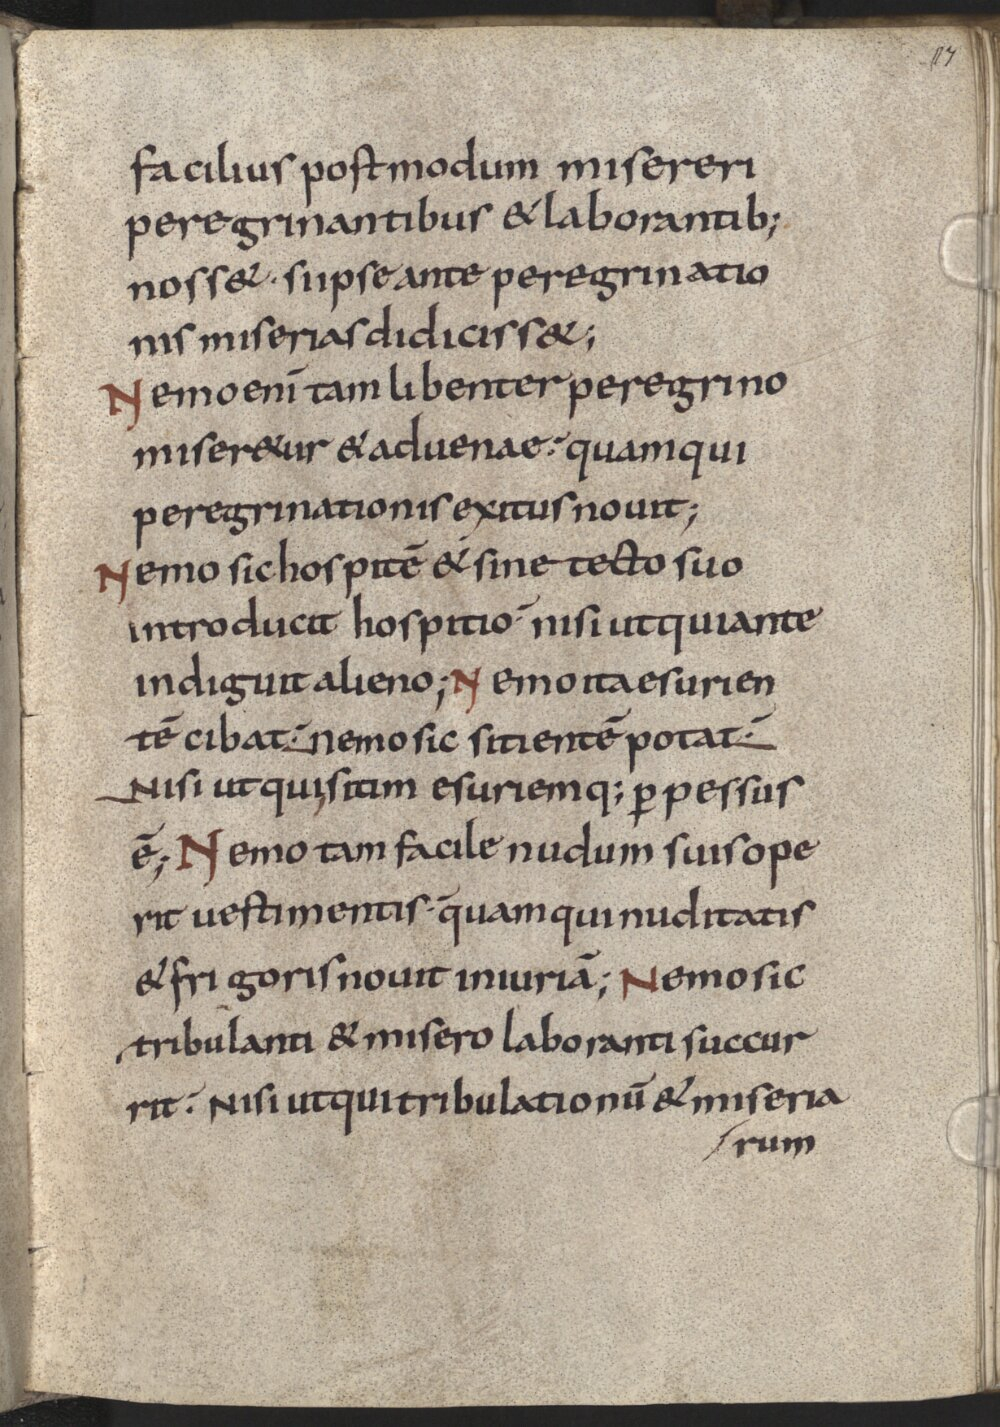 117
facilius postmodum misereri
peregrinantibus & laborantib;
noss&. siipse ante peregrinatio
nis miserias didiciss&;
Nemo enī tam libenter peregrino
miser&ur & aduenae: quam qui
peregrinationis exitus nouit;
Nemo sic hospitē & sine tecto suo
introducit hospitio nisi ut qui ante
indiguit alieno; Nemo ita esurien
tē cibat. nemo sic sitientē potat.
Nisi ut qui sitim esuriemq; ꝑpessus
ē; Nemo tam facile nudum suis ope
rit uestimentis. quam qui nuditatis
& frigoris nouit iniuriā; Nemo sic
tribulanti & misero laboranti succur
rit: Nisi ut qui tribulationū & miseria
rum